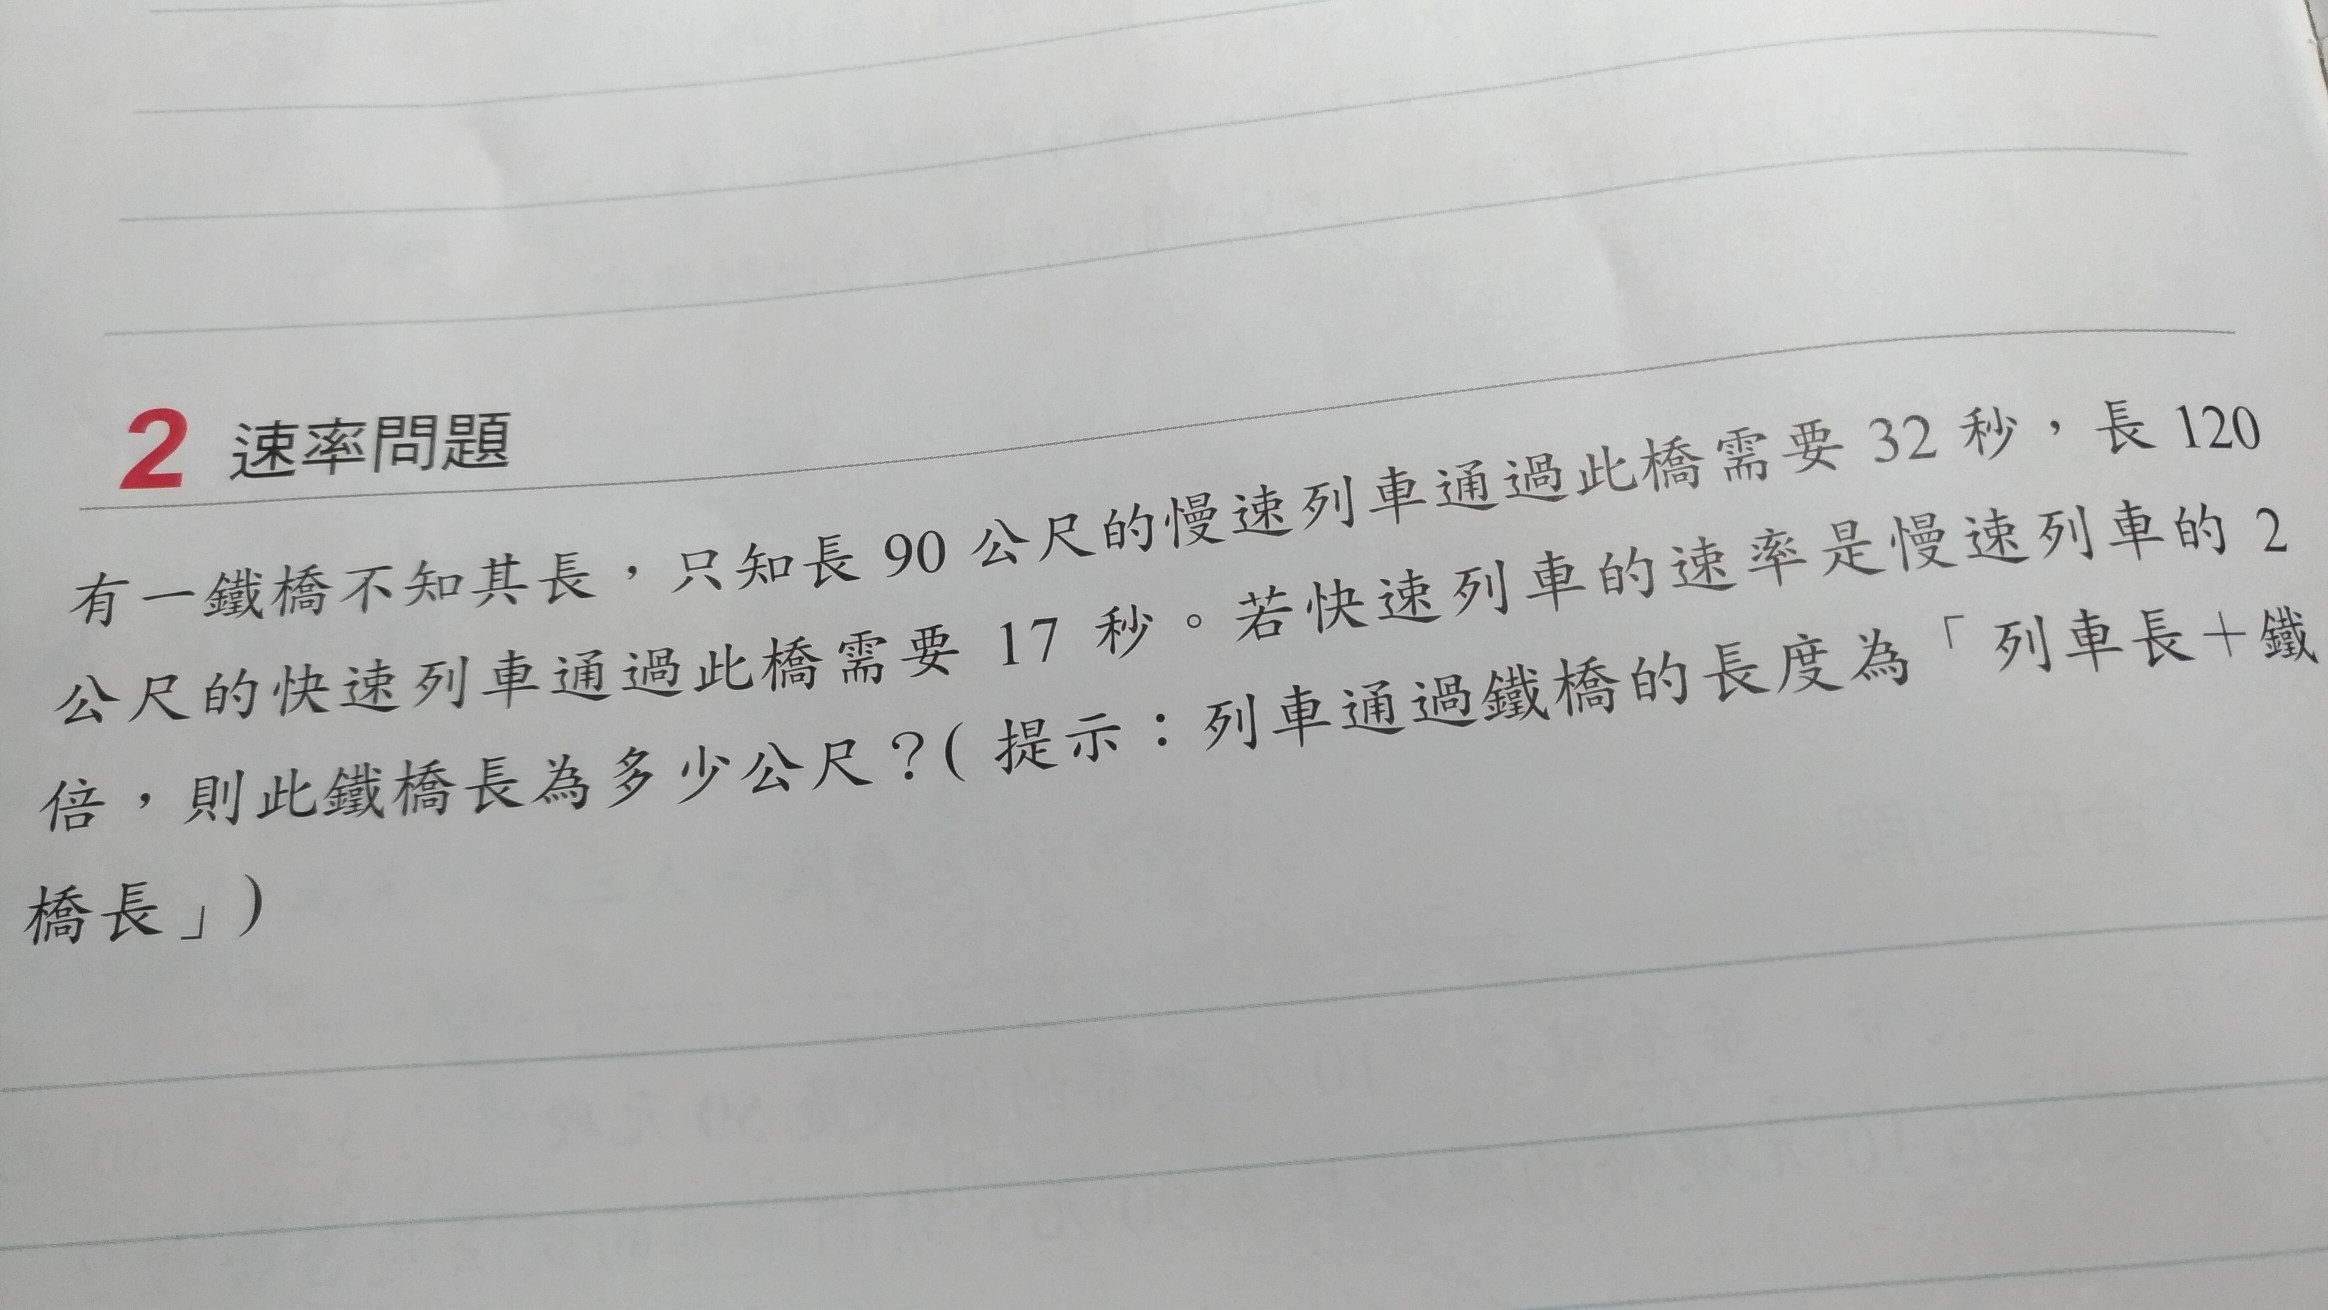 2 速率問題
有一鐵橋不知其長，只知長 90 公尺的慢速列車通過此橋需要 32 秒，長 120
公尺的快速列車通過此橋需要 17 秒。若快速列車的速率是慢速列車的 2
倍，則此鐵橋長為多少公尺？( 提示：列車通過鐵橋的長度為「列車長＋鐵
橋長」)